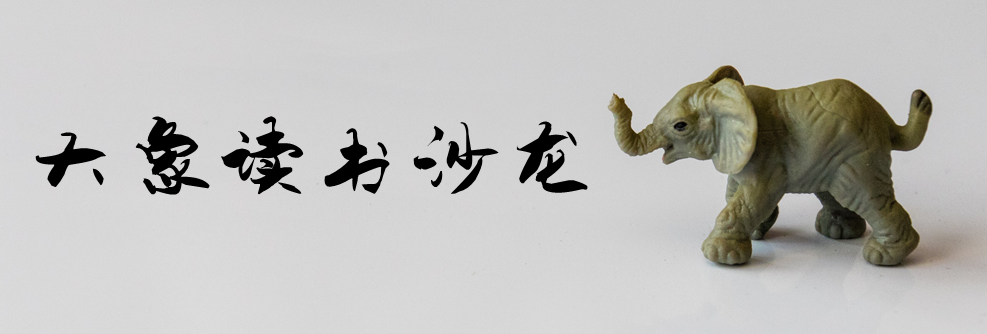 大象读书沙龙